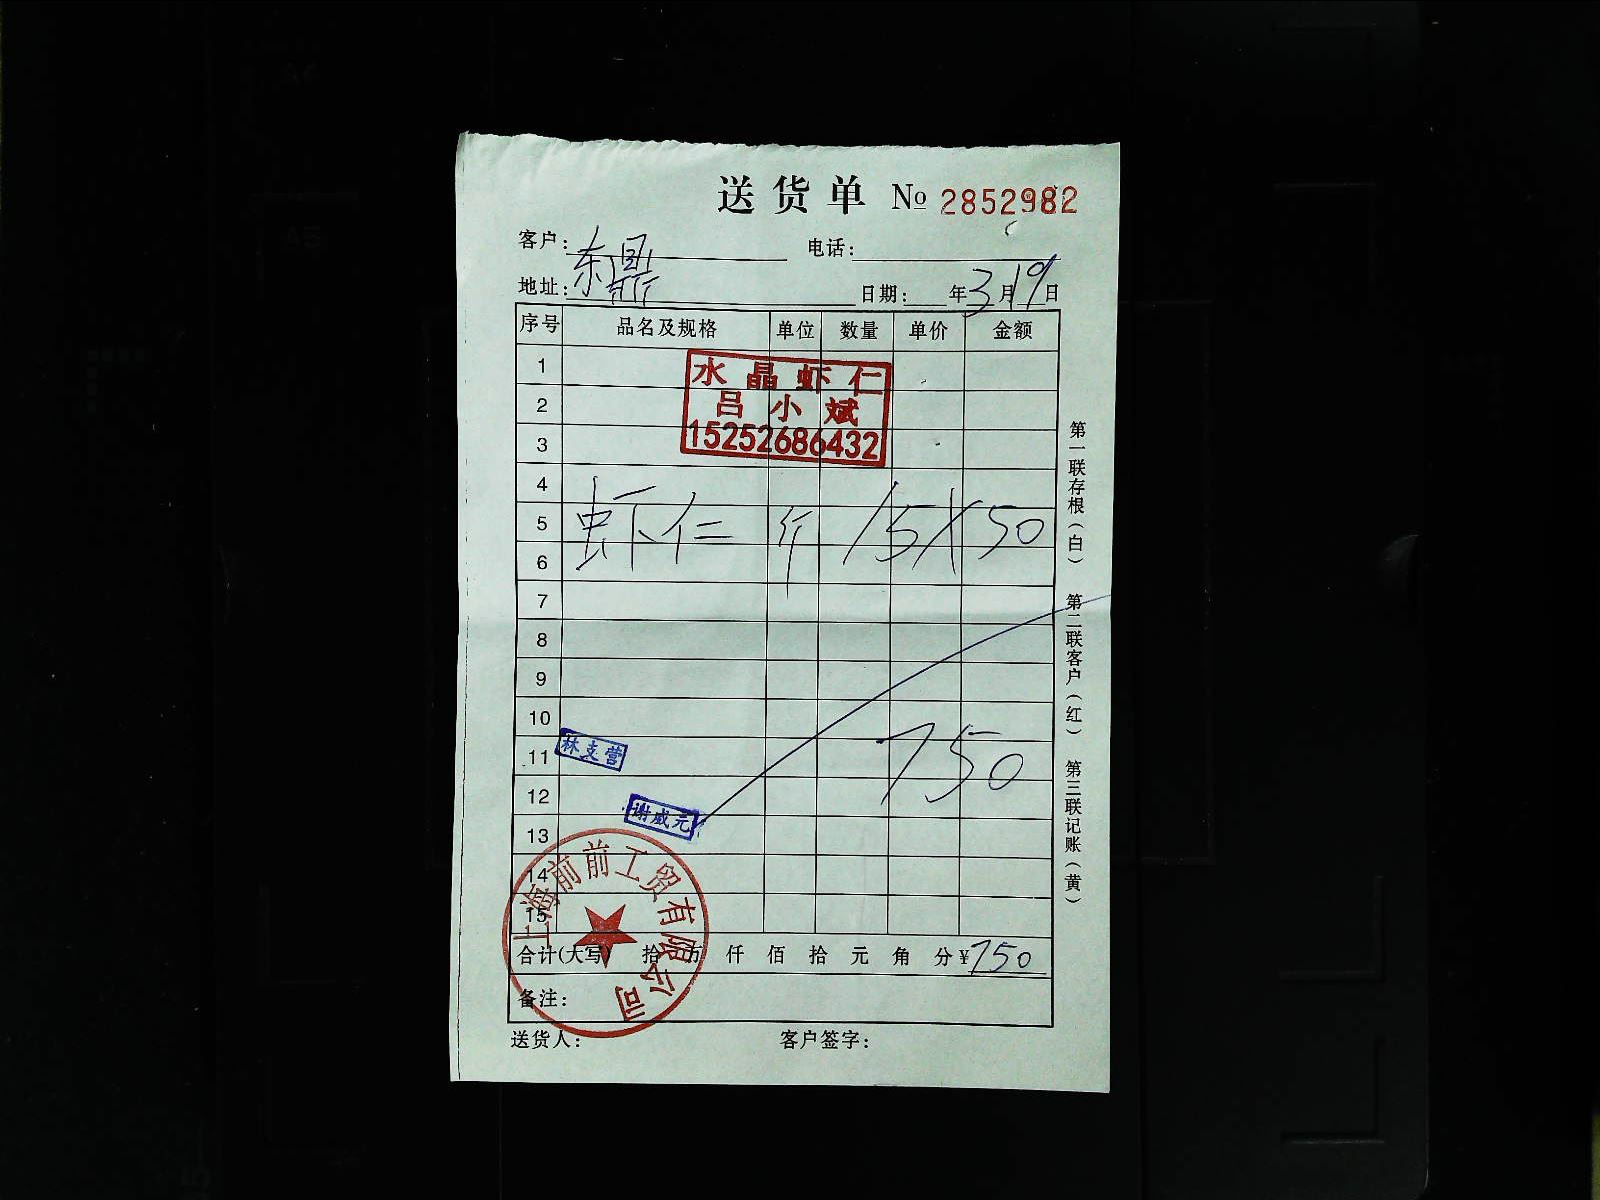 送货单 № 2852982
客户：东鼎 电话：
地址： 日期： 年3月19日
序号 品名及规格 单位 数量 单价 金额
1
水晶虾仁
2
吕小斌
3
15252686432
4
5 虾仁 斤 15X50
6
7
8
9
10
750
11
林支营
12
谢威元
13
14
15
上海前前工贸有限公司
合计(大写) 拾 万 仟 佰 拾 元 角 分 ¥750
备注：
送货人： 客户签字：
第一联存根（白） 第二联客户（红） 第三联记账（黄）